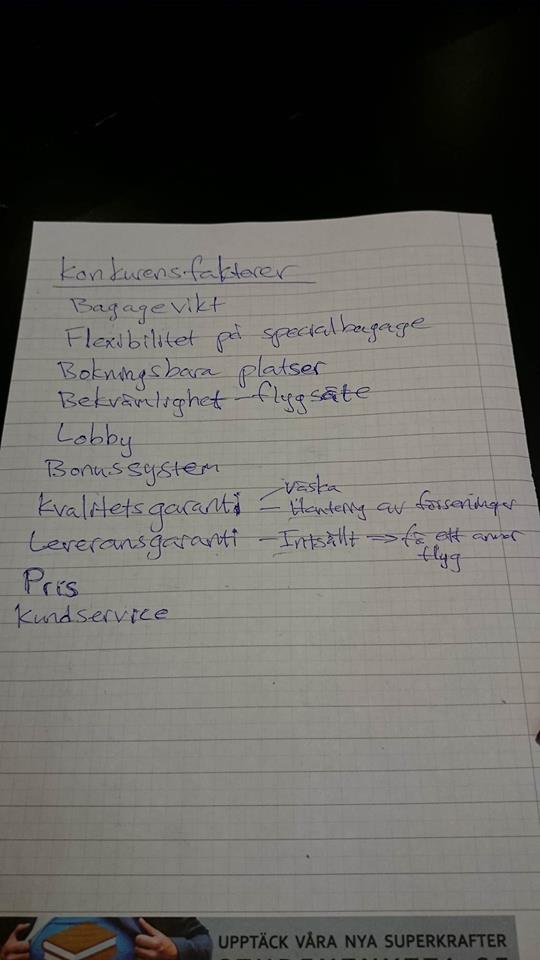 Konkurensfaktorer
Bagagevikt
Flexibilitet på specialbagage
Bokningsbara platser
Bekvämlighet - flygsäte
Lobby
Bonussystem
väska
Kvalitetsgaranti - Hantering av förseningar
Leveransgaranti - Intsällt => få ett annat
flyg
Pris
Kundservice
UPPTÄCK VÅRA NYA SUPERKRAFTER